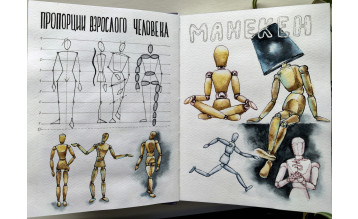 ПРОПОРЦИИ ВЗРОСЛОГО ЧЕЛОВЕКА
МАНЕКЕН